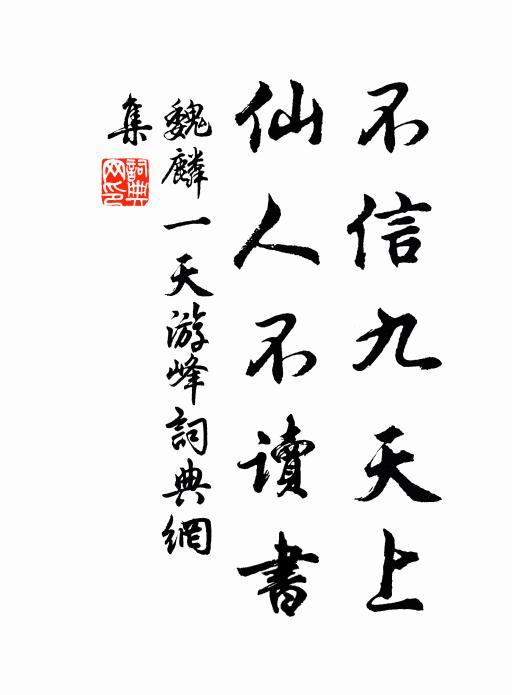 不信九天上
仙人不讀書
魏麟一天游峰詞典網
集
詞典網印